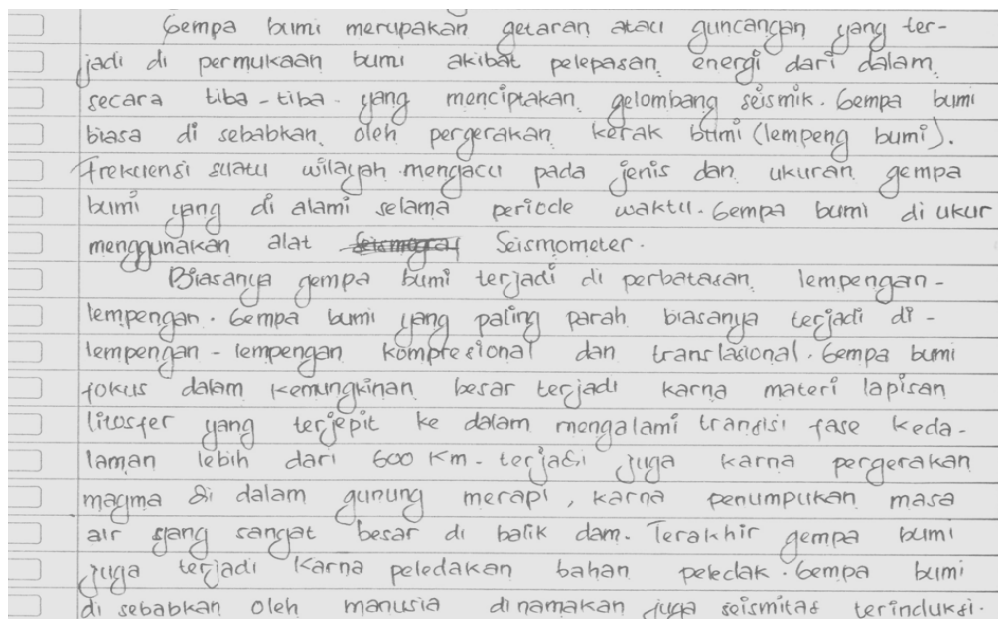 Gempa bumi merupakan getaran atau guncangan yang ter-
jadi di permukaan bumi akibat pelepasan energi dari dalam
secara tiba-tiba yang menciptakan gelombang seismik. Gempa bumi
biasa di sebabkan oleh pergerakan kerak bumi (lempeng bumi).
Frekuensi suatu wilayah mengacu pada jenis dan ukuran gempa
bumi yang di alami selama periode waktu. Gempa bumi di ukur
menggunakan alat Seismometer.
Biasanya gempa bumi terjadi di perbatasan lempengan-
lempengan. Gempa bumi yang paling parah biasanya terjadi di-
lempengan-lempengan kompresional dan translasional. Gempa bumi
fokus dalam kemungkinan besar terjadi karna materi lapisan
litosfer yang terjepit ke dalam mengalami transisi fase keda-
laman lebih dari 600 Km. terjadi juga karna pergerakan
magma di dalam gunung merapi, karna penumpukan masa
air yang sangat besar di balik dam. Terakhir gempa bumi
juga terjadi karna peledakan bahan peledak. Gempa bumi
di sebabkan oleh manusia dinamakan juga seismitas terinduksi.